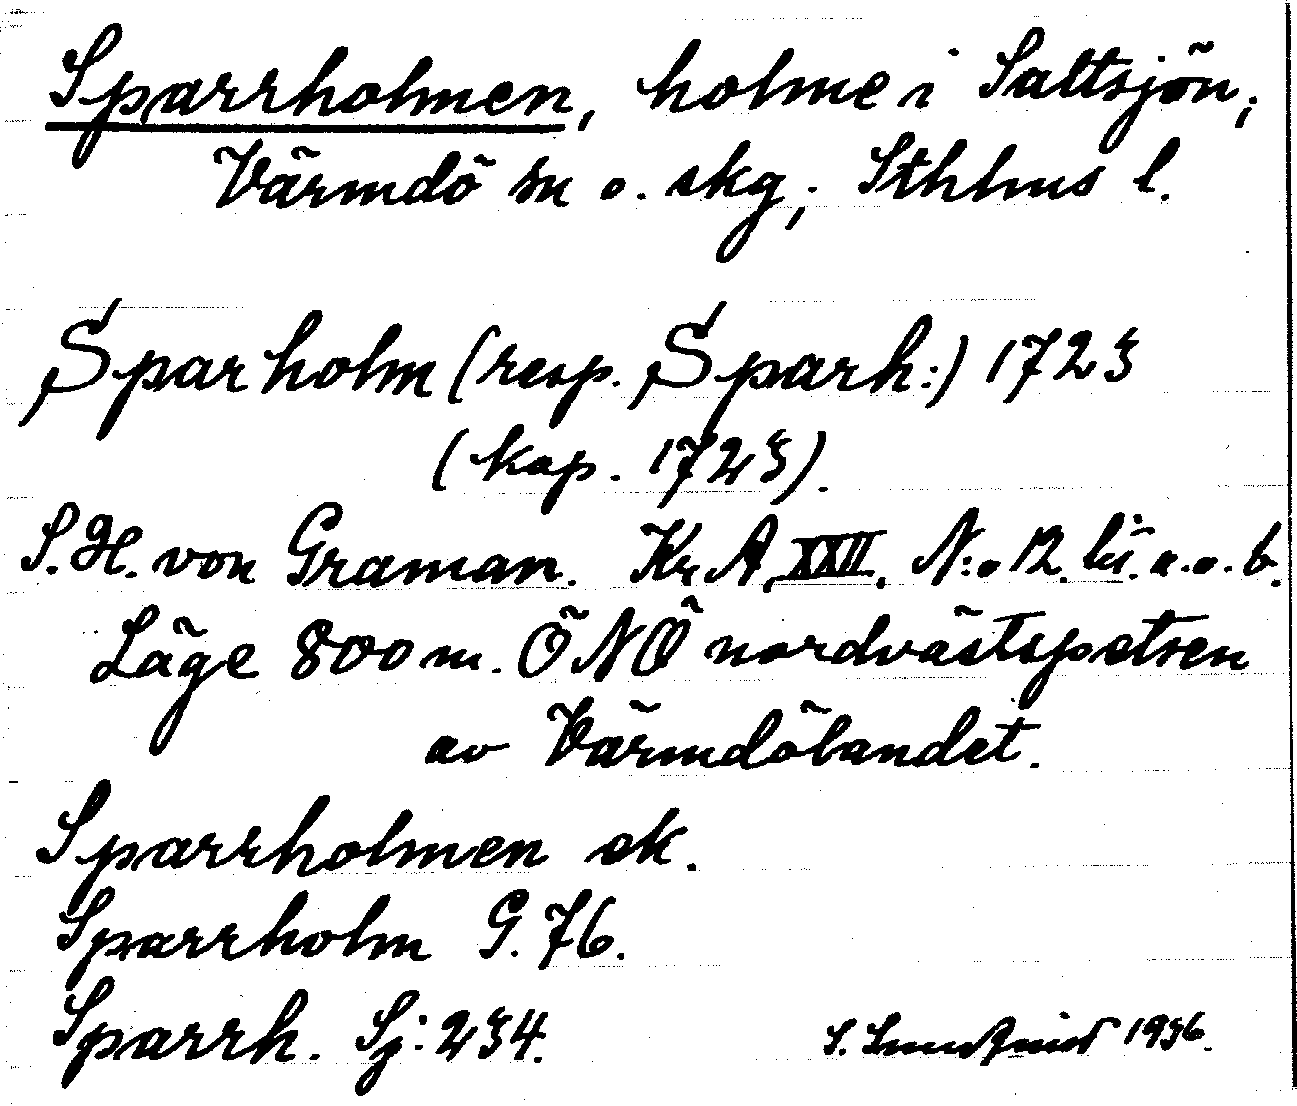 Sparrholmen, holme i Saltsjön,
Värmdö sn o. skg, Sthlms l.
Sparholm (resp. Sparh:) 1723
(kop. 1723).
S. H. von Graman. Kr A, XXII, N:o 12. lit. a.o.b.
Läge 800 m. ÖNÖ nordvästspetsen
av Värmdölandet.
Sparrholmen ek.
Sparrholm G. 76.
Sparrh. Sj: 234.
S. 1936.